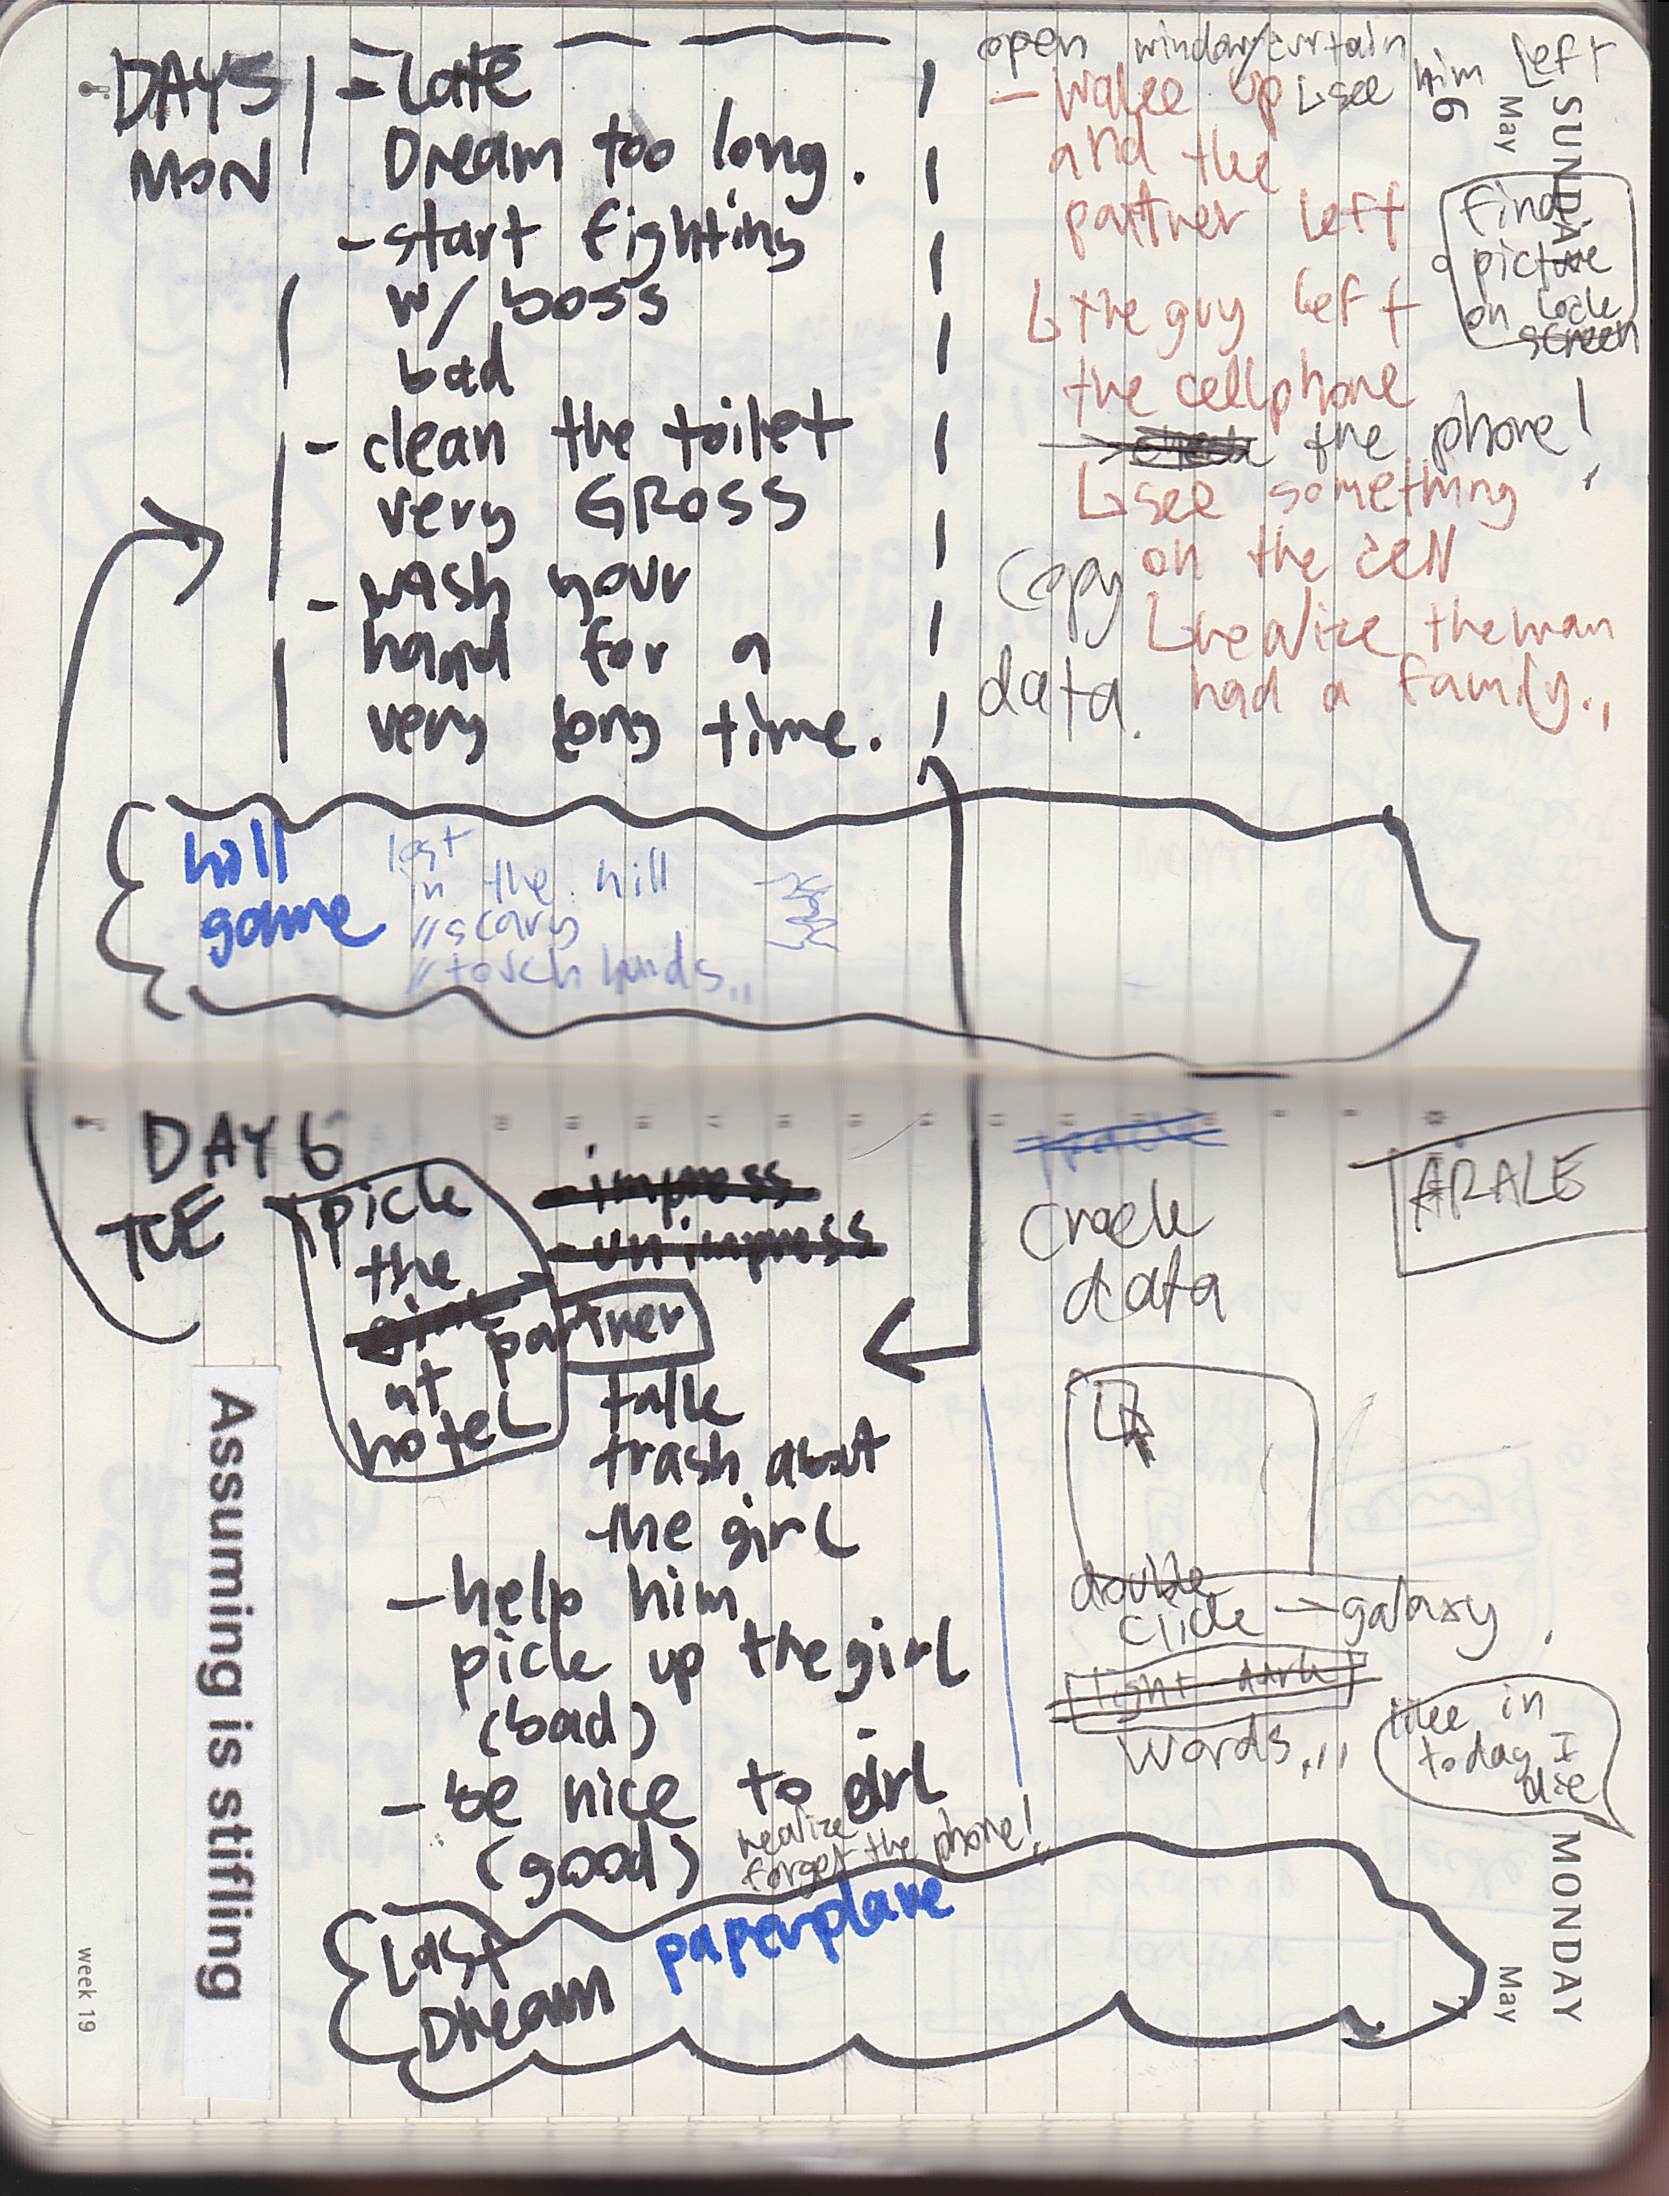 DAY5
MON
- Late
Dream too long.
- start fighting
w/ boss
bad
- clean the toilet
very GROSS
- wash your
hand for a
very long time.
open window/curtain
↳ see him left
- wake up
and the
partner left
↳ the guy left
the cellphone
→ check the phone!
↳ see something
on the cell
↳ realize the man
had a family..
copy
data.
find
picture
on lock
screen
SUNDAY
May
6
hill
game
lost
in the hill
// scary
// touch hands..
DAY 6
TUE
pick
the
girl partner
at
hotel
- impress
- unimpress
talk
trash about
the girl
- help him
pick up the girl
(bad)
- be nice to girl
(good)
realize
forget the phone!..
Last
Dream
paperplane
crack
data
ARALE
double
click → galaxy
light dark
words...
like in
today I
die
MONDAY
May
7
Assuming is stifling
week 19